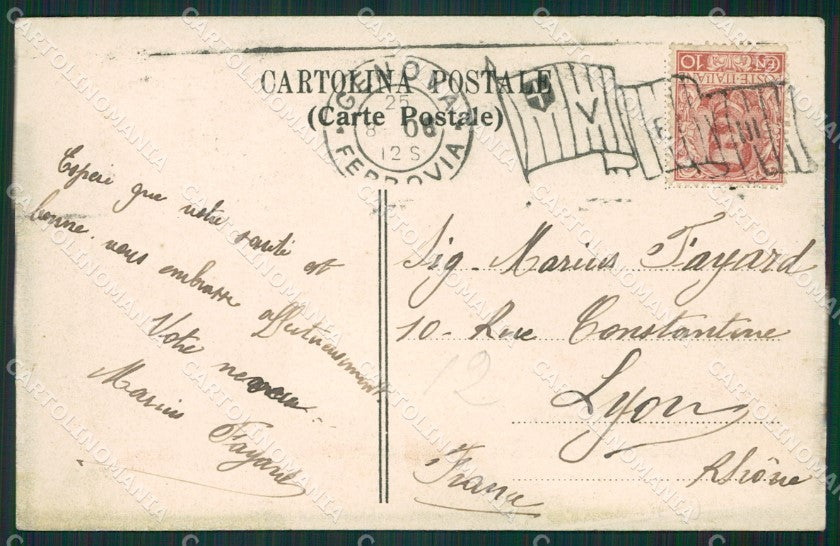 CARTOLINA POSTALE
(Carte Postale)
GENOVA
25
8 08
12 S
FERROVIA
V E III
POSTE ITALIANE
CEN 10
Espère que votre santé est
bonne. vous embrasse affectueusement
Votre neveu
Marius Fayard
Sig. Marius Fayard
10 - Rue Constantine
Lyon
Rhône
France
12
CARTOLINOMANIA